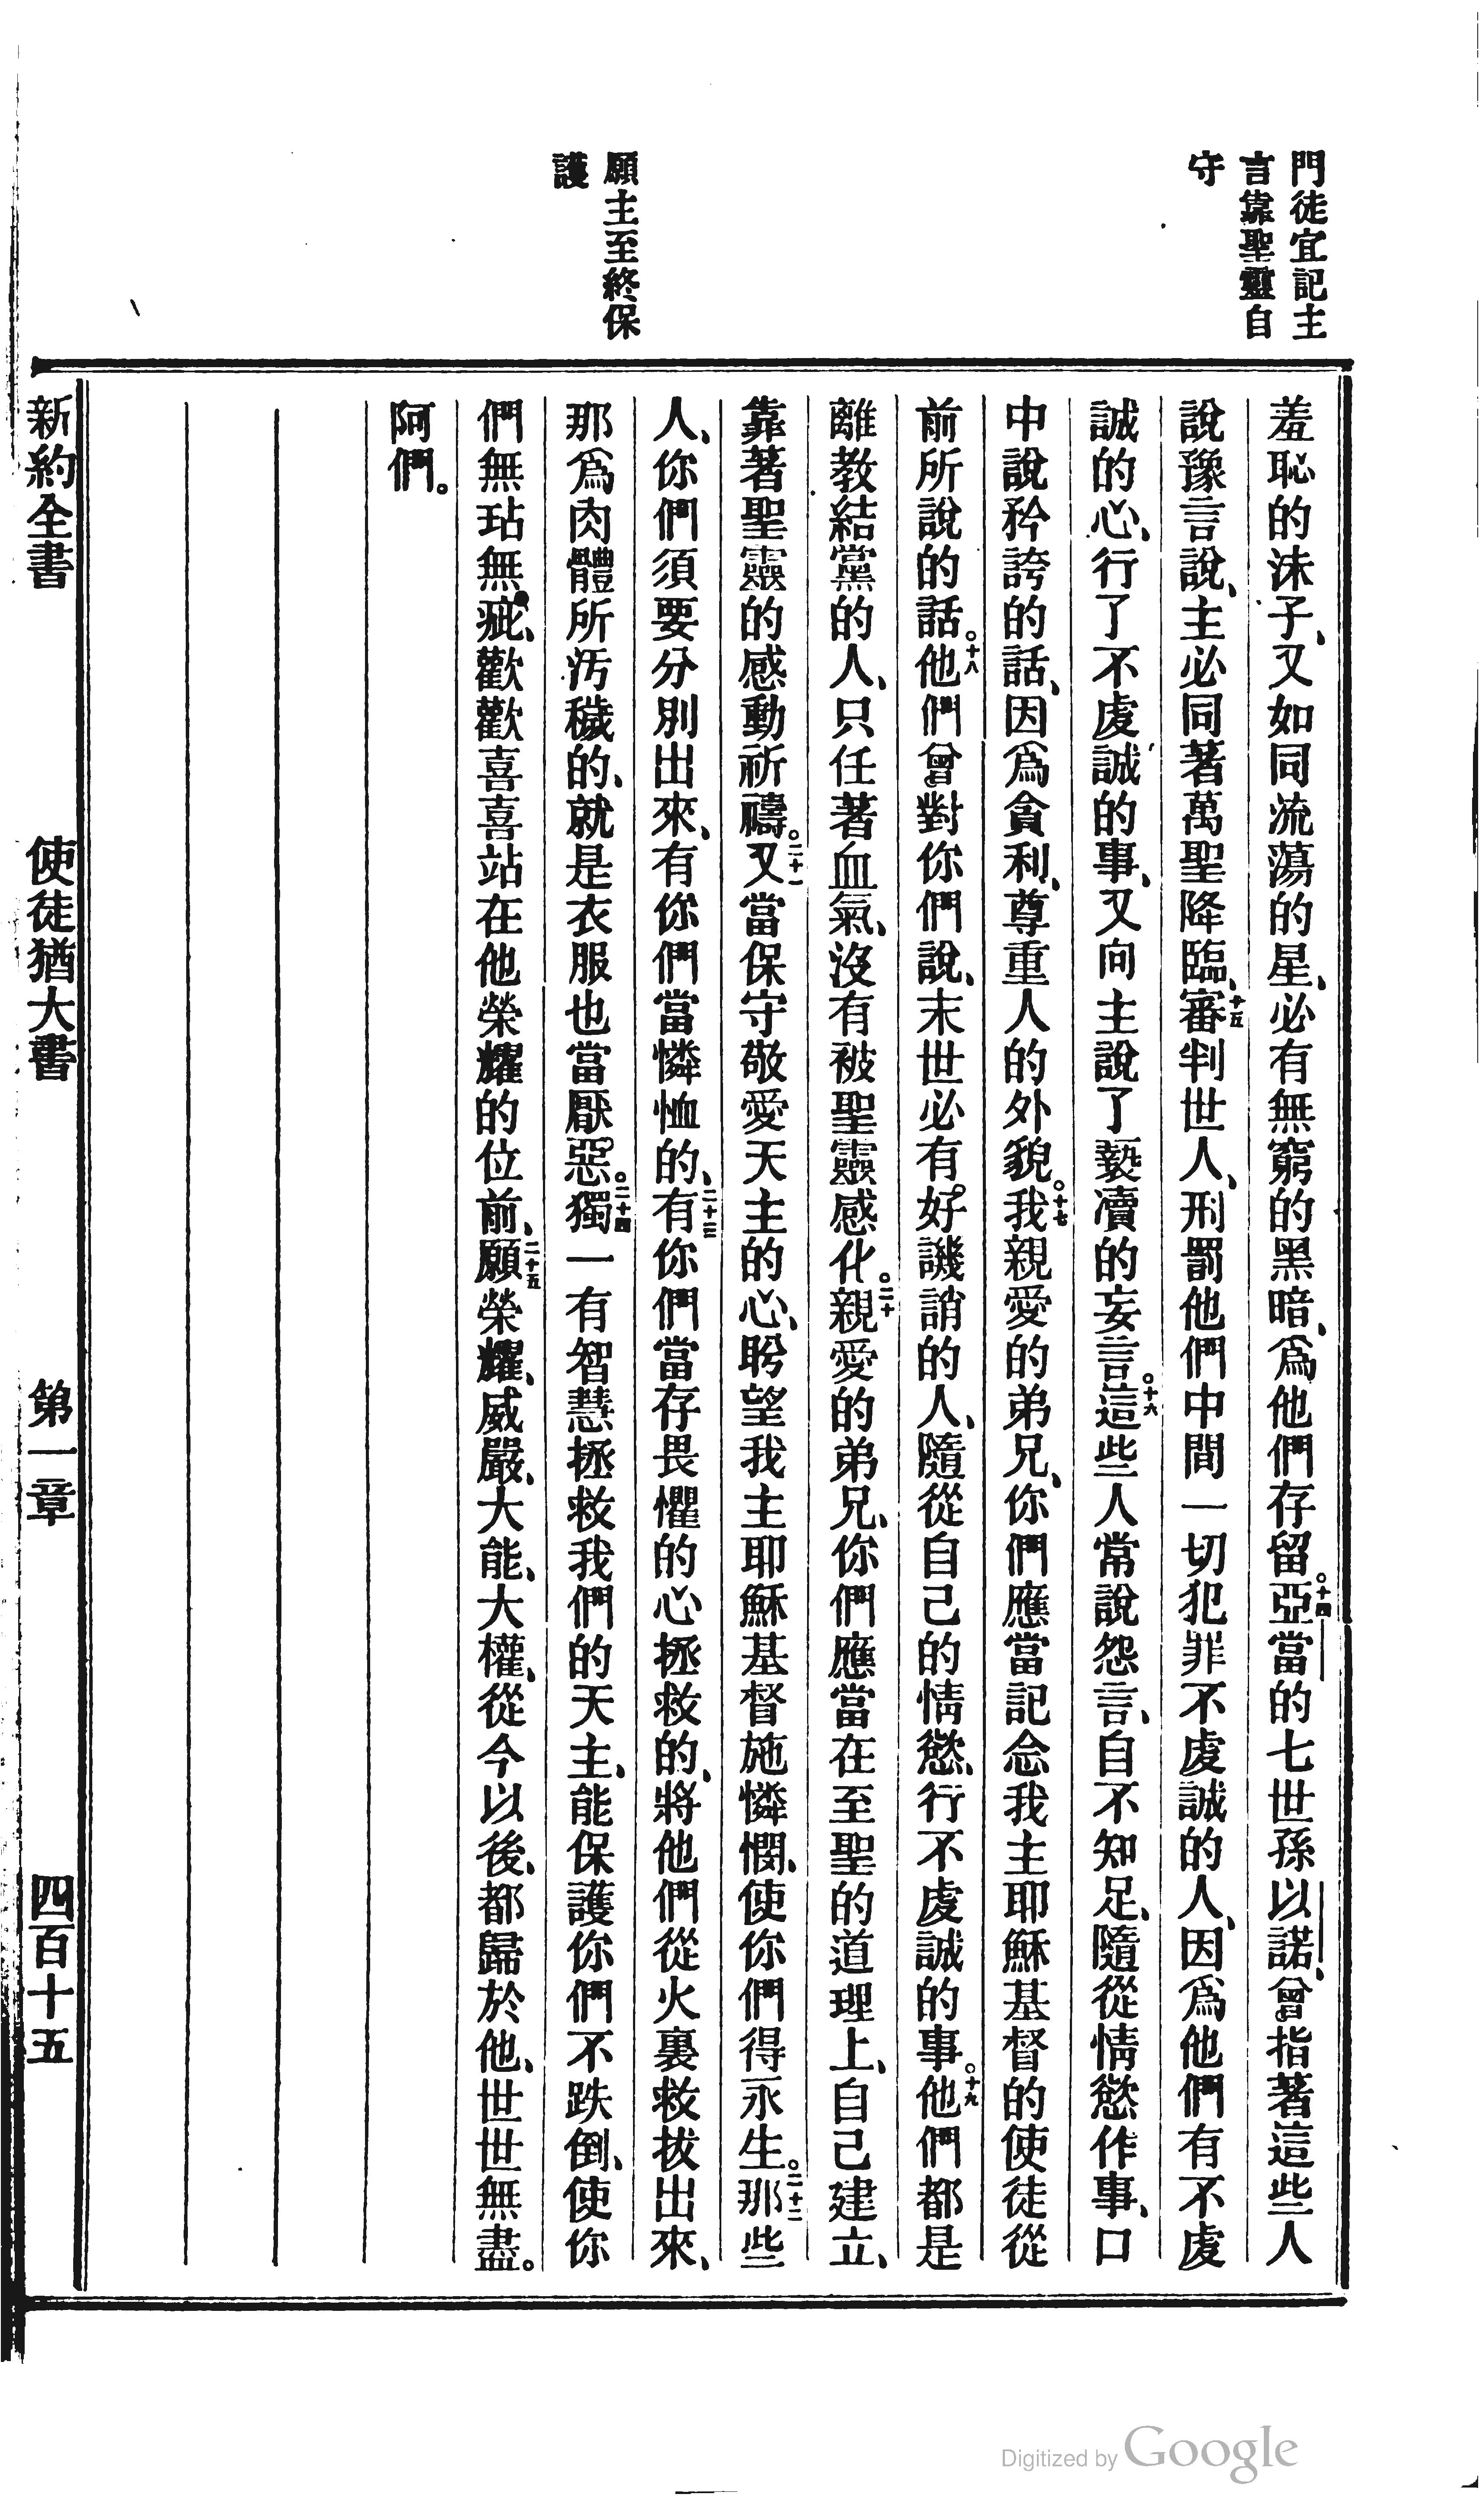 門徒宜記主
言靠聖靈自
守
願主至終保
護
羞恥的沫子、又如同流蕩的星、必有無窮的黑暗、爲他們存留。十四亞當的七世孫以諾、曾指著這些人
說豫言說、主必同著萬聖降臨、十五審判世人、刑罰他們中間一切犯罪不虔誠的人、因爲他們有不虔
誠的心、行了不虔誠的事、又向主說了褻瀆的妄言。十六這些人常說怨言、自不知足、隨從情慾作事、口
中說矜誇的話、因爲貪利、尊重人的外貌。十七我親愛的弟兄、你們應當記念我主耶穌基督的使徒從
前所說的話。十八他們曾對你們說、末世必有好譏誚的人、隨從自己的情慾、行不虔誠的事。十九他們都是
離教結黨的人、只任著血氣、沒有被聖靈感化。二十親愛的弟兄、你們應當在至聖的道理上、自己建立、
靠著聖靈的感動祈禱。二十一又當保守敬愛天主的心、盼望我主耶穌基督施憐憫、使你們得永生。二十二那些
人、你們須要分別出來、有你們當憐恤的、二十三有你們當存畏懼的心拯救的、將他們從火裏救拔出來、
那爲肉體所汚穢的、就是衣服也當厭惡。二十四獨一有智慧拯救我們的天主、能保護你們不跌倒、使你
們無玷無疵、歡歡喜喜站在他榮耀的位前、二十五願榮耀、威嚴、大能、大權、從今以後、都歸於他、世世無盡。
阿們。
新約全書 使徒猶大書 第一章 四百十五
Digitized by Google